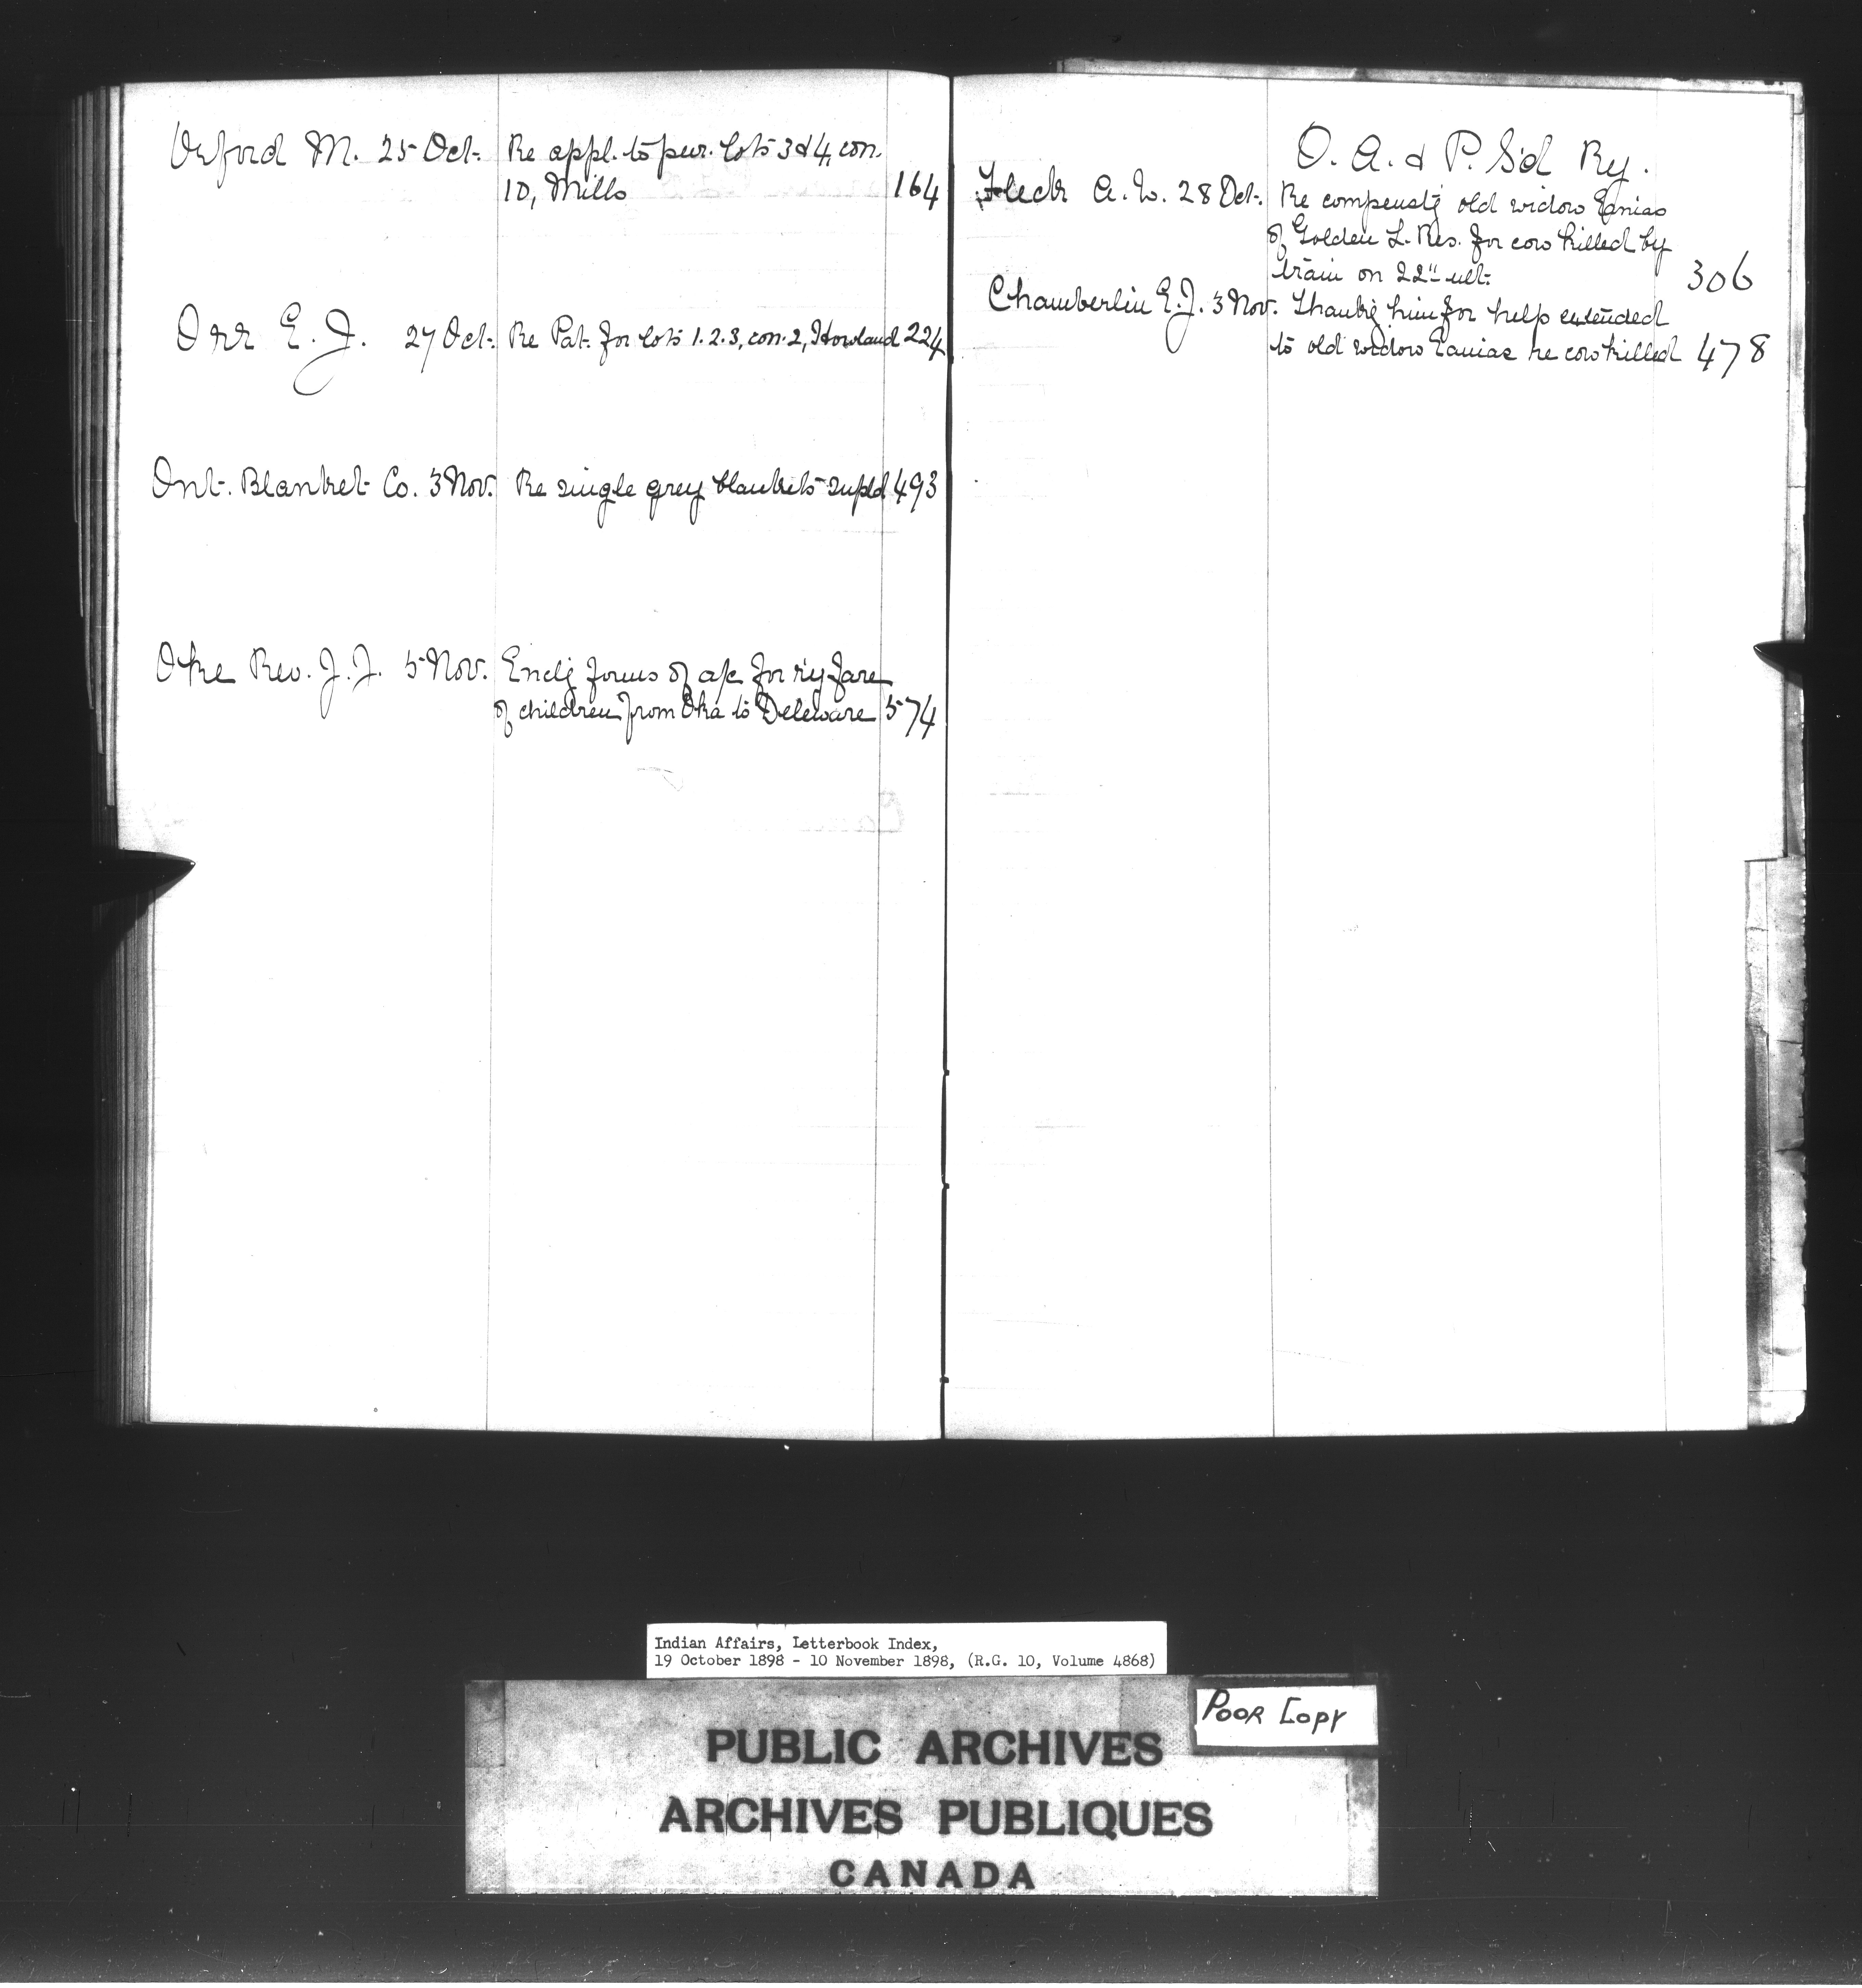 Oxford M. 25 Oct. Re appl. to pur. lots 3 & 4, con.
10, Mills 164
Orr E. J. 27 Oct. Re Pat. for lots 1. 2. 3, con. 2, Howland 224
Ont. Blanket Co. 3 Nov. Re single grey blankets supld 493
Oke Rev. J. J. 5 Nov. Enclg forms of a/c for r'y fare
of children from Oka to Deleware 574
O. A. & P. S'd Ry.
Fleck A. W. 28 Oct. Re compensatg old widow
of Golden L. Res. for cow killed by
train on 22" ult. 306
Chamberlin E. J. 3 Nov. Thankg him for help extended
to old widow re cow killed 478
Indian Affairs, Letterbook Index,
19 October 1898 - 10 November 1898, (R.G. 10, Volume 4868)
POOR COPY
PUBLIC ARCHIVES
ARCHIVES PUBLIQUES
CANADA